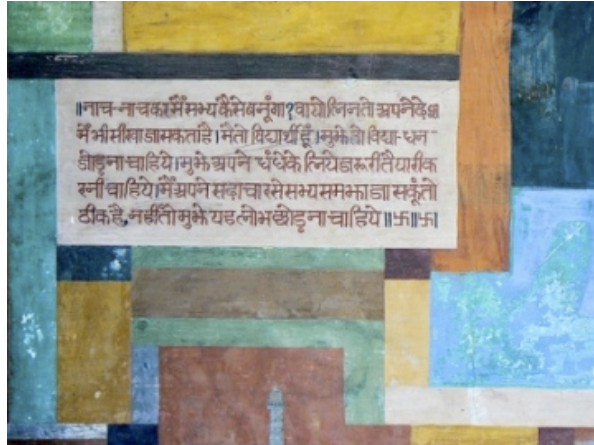 ॥नाच-नाचकर मैं सभ्य कैसे बनूंगा? वायोलिन तो अपने देश
में भी सीखा जा सकता है।मैं तो विद्यार्थी हूँ।मुझे तो विद्या-धन-
जोड़ना चाहिये।मुझे अपने धंधे के लिये जरूरी तैयारी क
रनी चाहिये।मैं अपने सदाचार से सभ्य समझा जा सकूं तो
ठीक है, नहीं तो मुझे यह लोभ छोड़ना चाहिये॥卐॥卐।